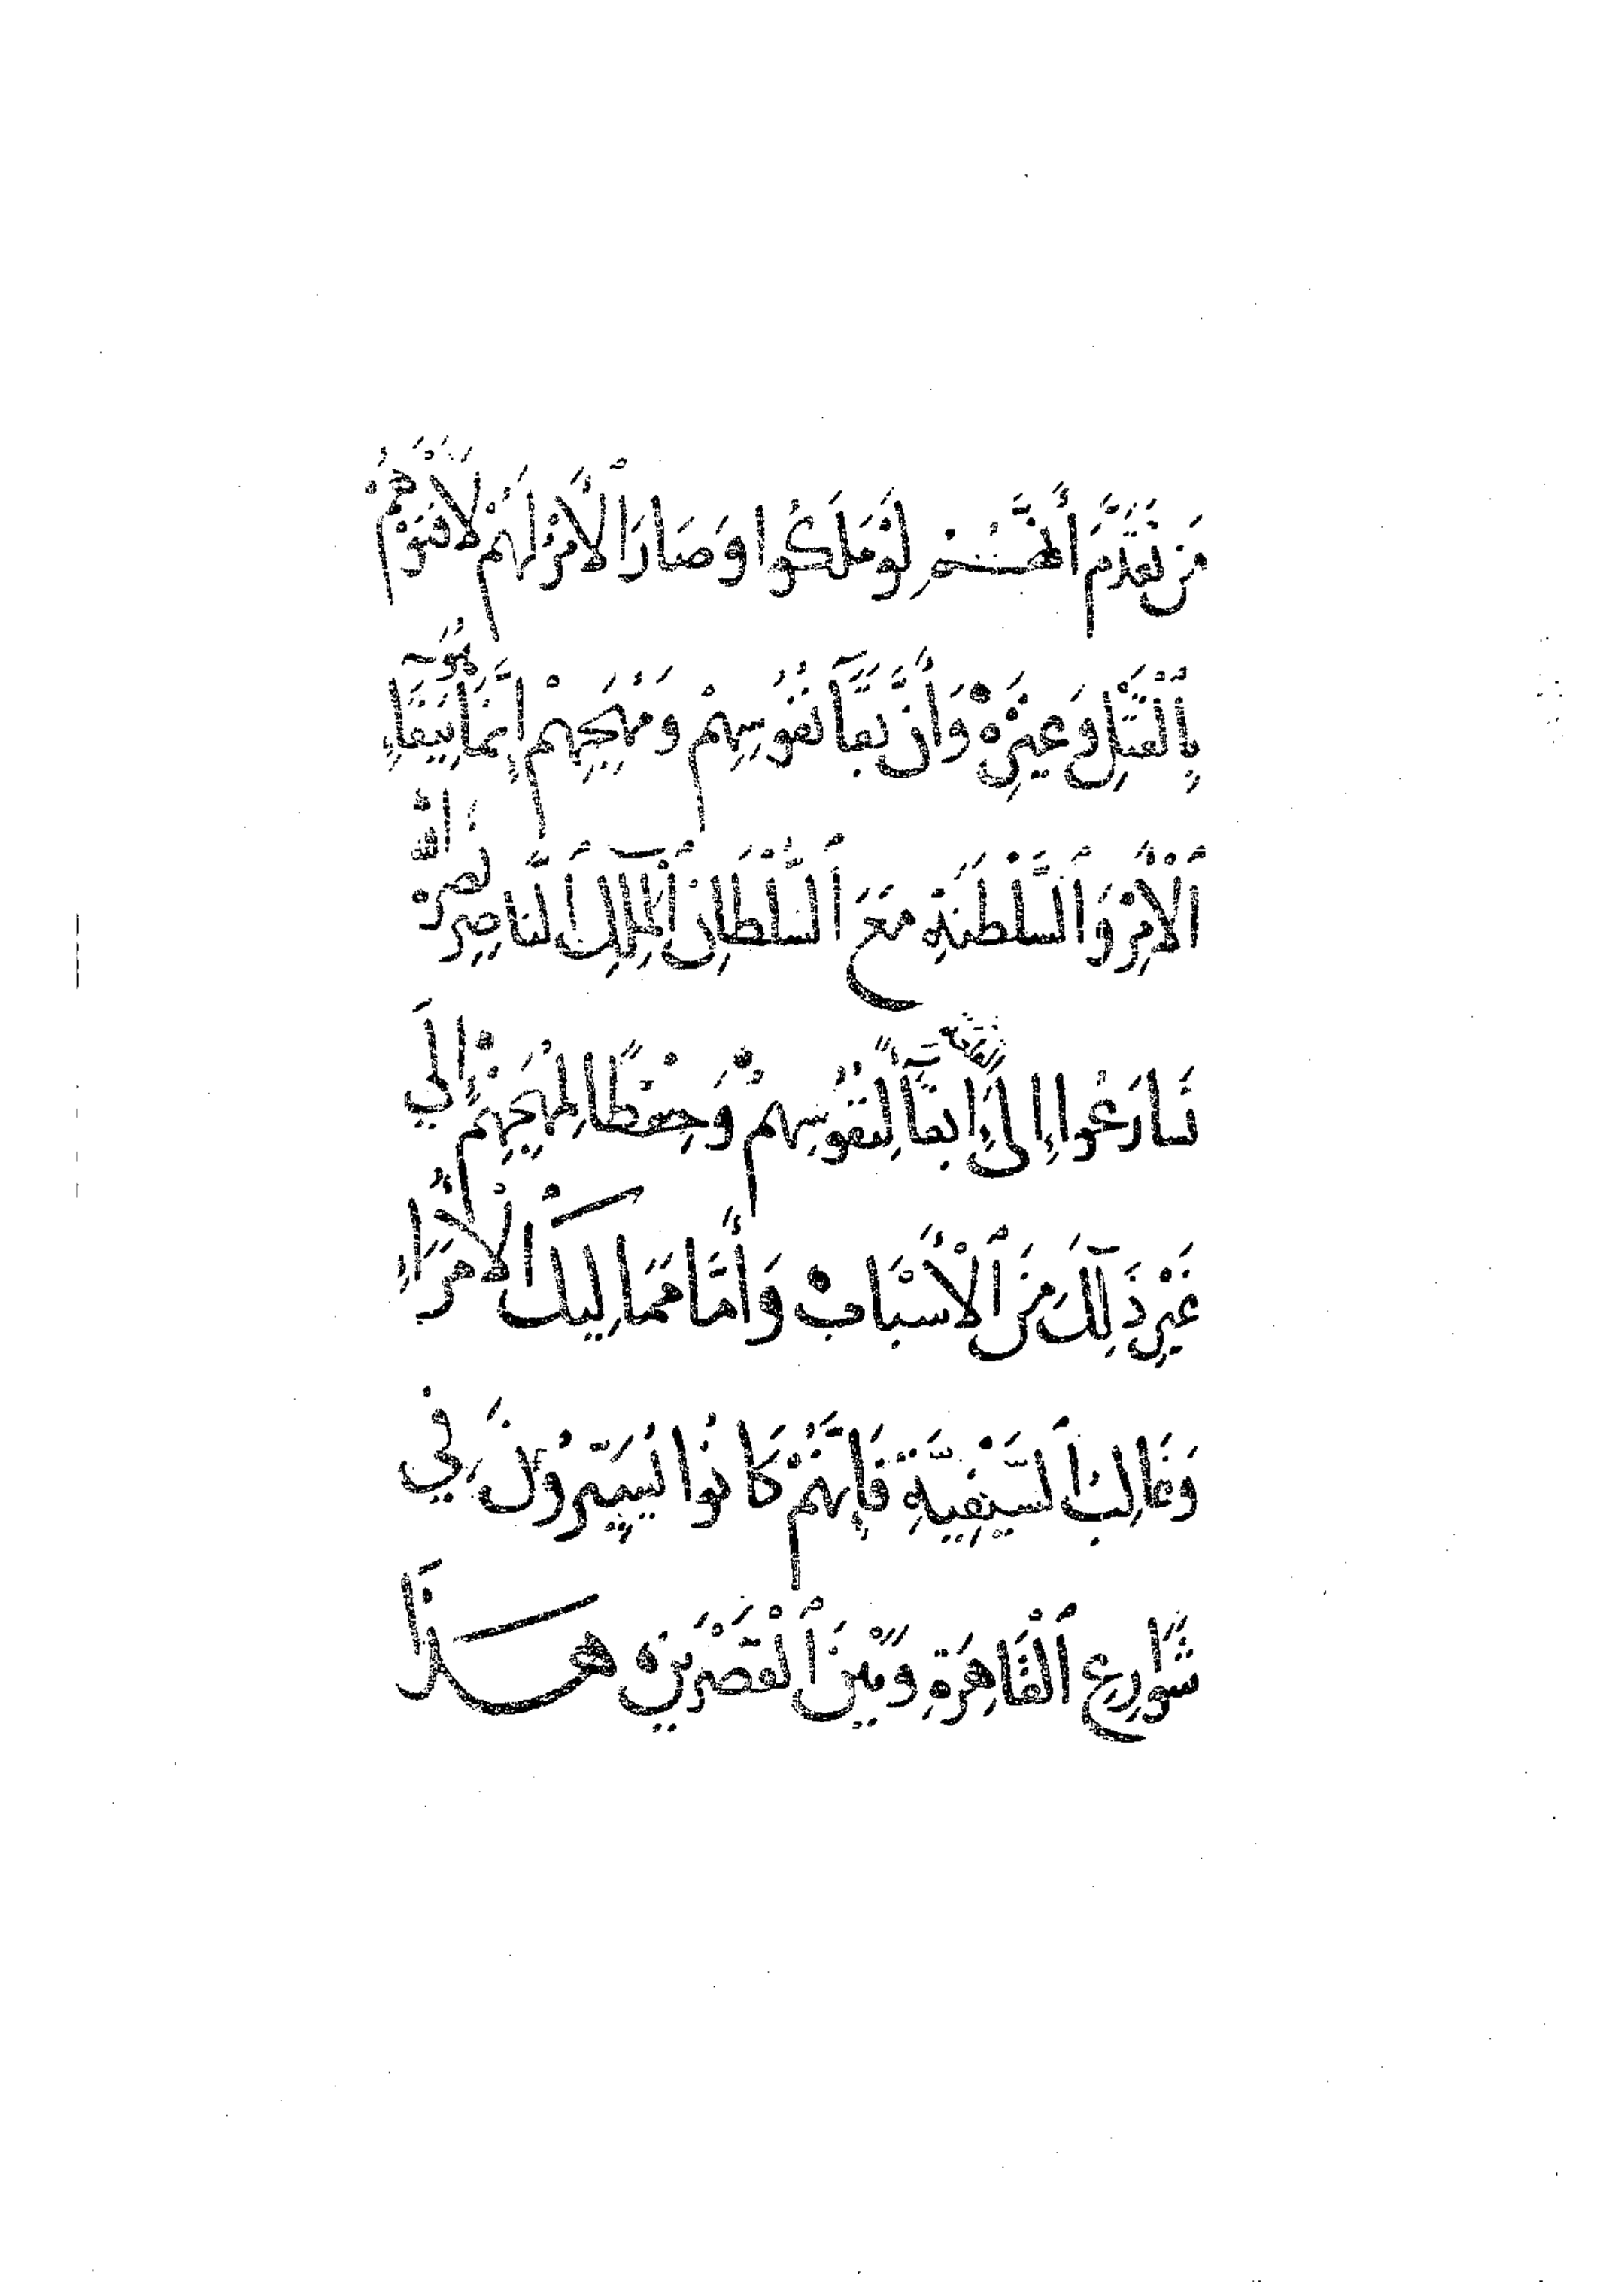 مَن تَقَدَّمَ أَنَّهُمْ لَوْ مَلَكُوا وَصَارَ ٱلْأَمْرُ لَهُمْ لَأَفْنَوْهُمْ
بِٱلْقَتْلِ وَغَيْرِهْ وَأَنَّ بَقَآ نُفُوسِهِمْ وَمُهَجِهِمْ إِنَّمَا يَبْقَاءِ هُوَ
ٱلْأَمْرِ وَٱلسَّلْطَنَةِ مَعَ ٱلسُّلْطَانِ ٱلْمَلِكِ ٱلنَّاصِرِ نَصَرَهُ اللّٰهُ
سَارَعُوا إِلَى ٱلْقَلْعَةِ إِبْقَآءً لِنُفُوسِهِمْ وَحِفْظًا لِمُهَجِهِمْ إِلَي
غَيْرِ ذَلِكَ مِنَ ٱلْأَسْبَابْ وَأَمَّا مَمَالِيكْ الْأُمَرَاءِ
وَغَالِبُ ٱلسَّيْفِيَّةِ فَإِنَّهُمْ كَانُوا يُسَيَّرُونَ فِي
شَوَارِعِ ٱلْقَاهِرَةِ وَبَيْنَ ٱلْقَصْرَيْنْ هَـذَا